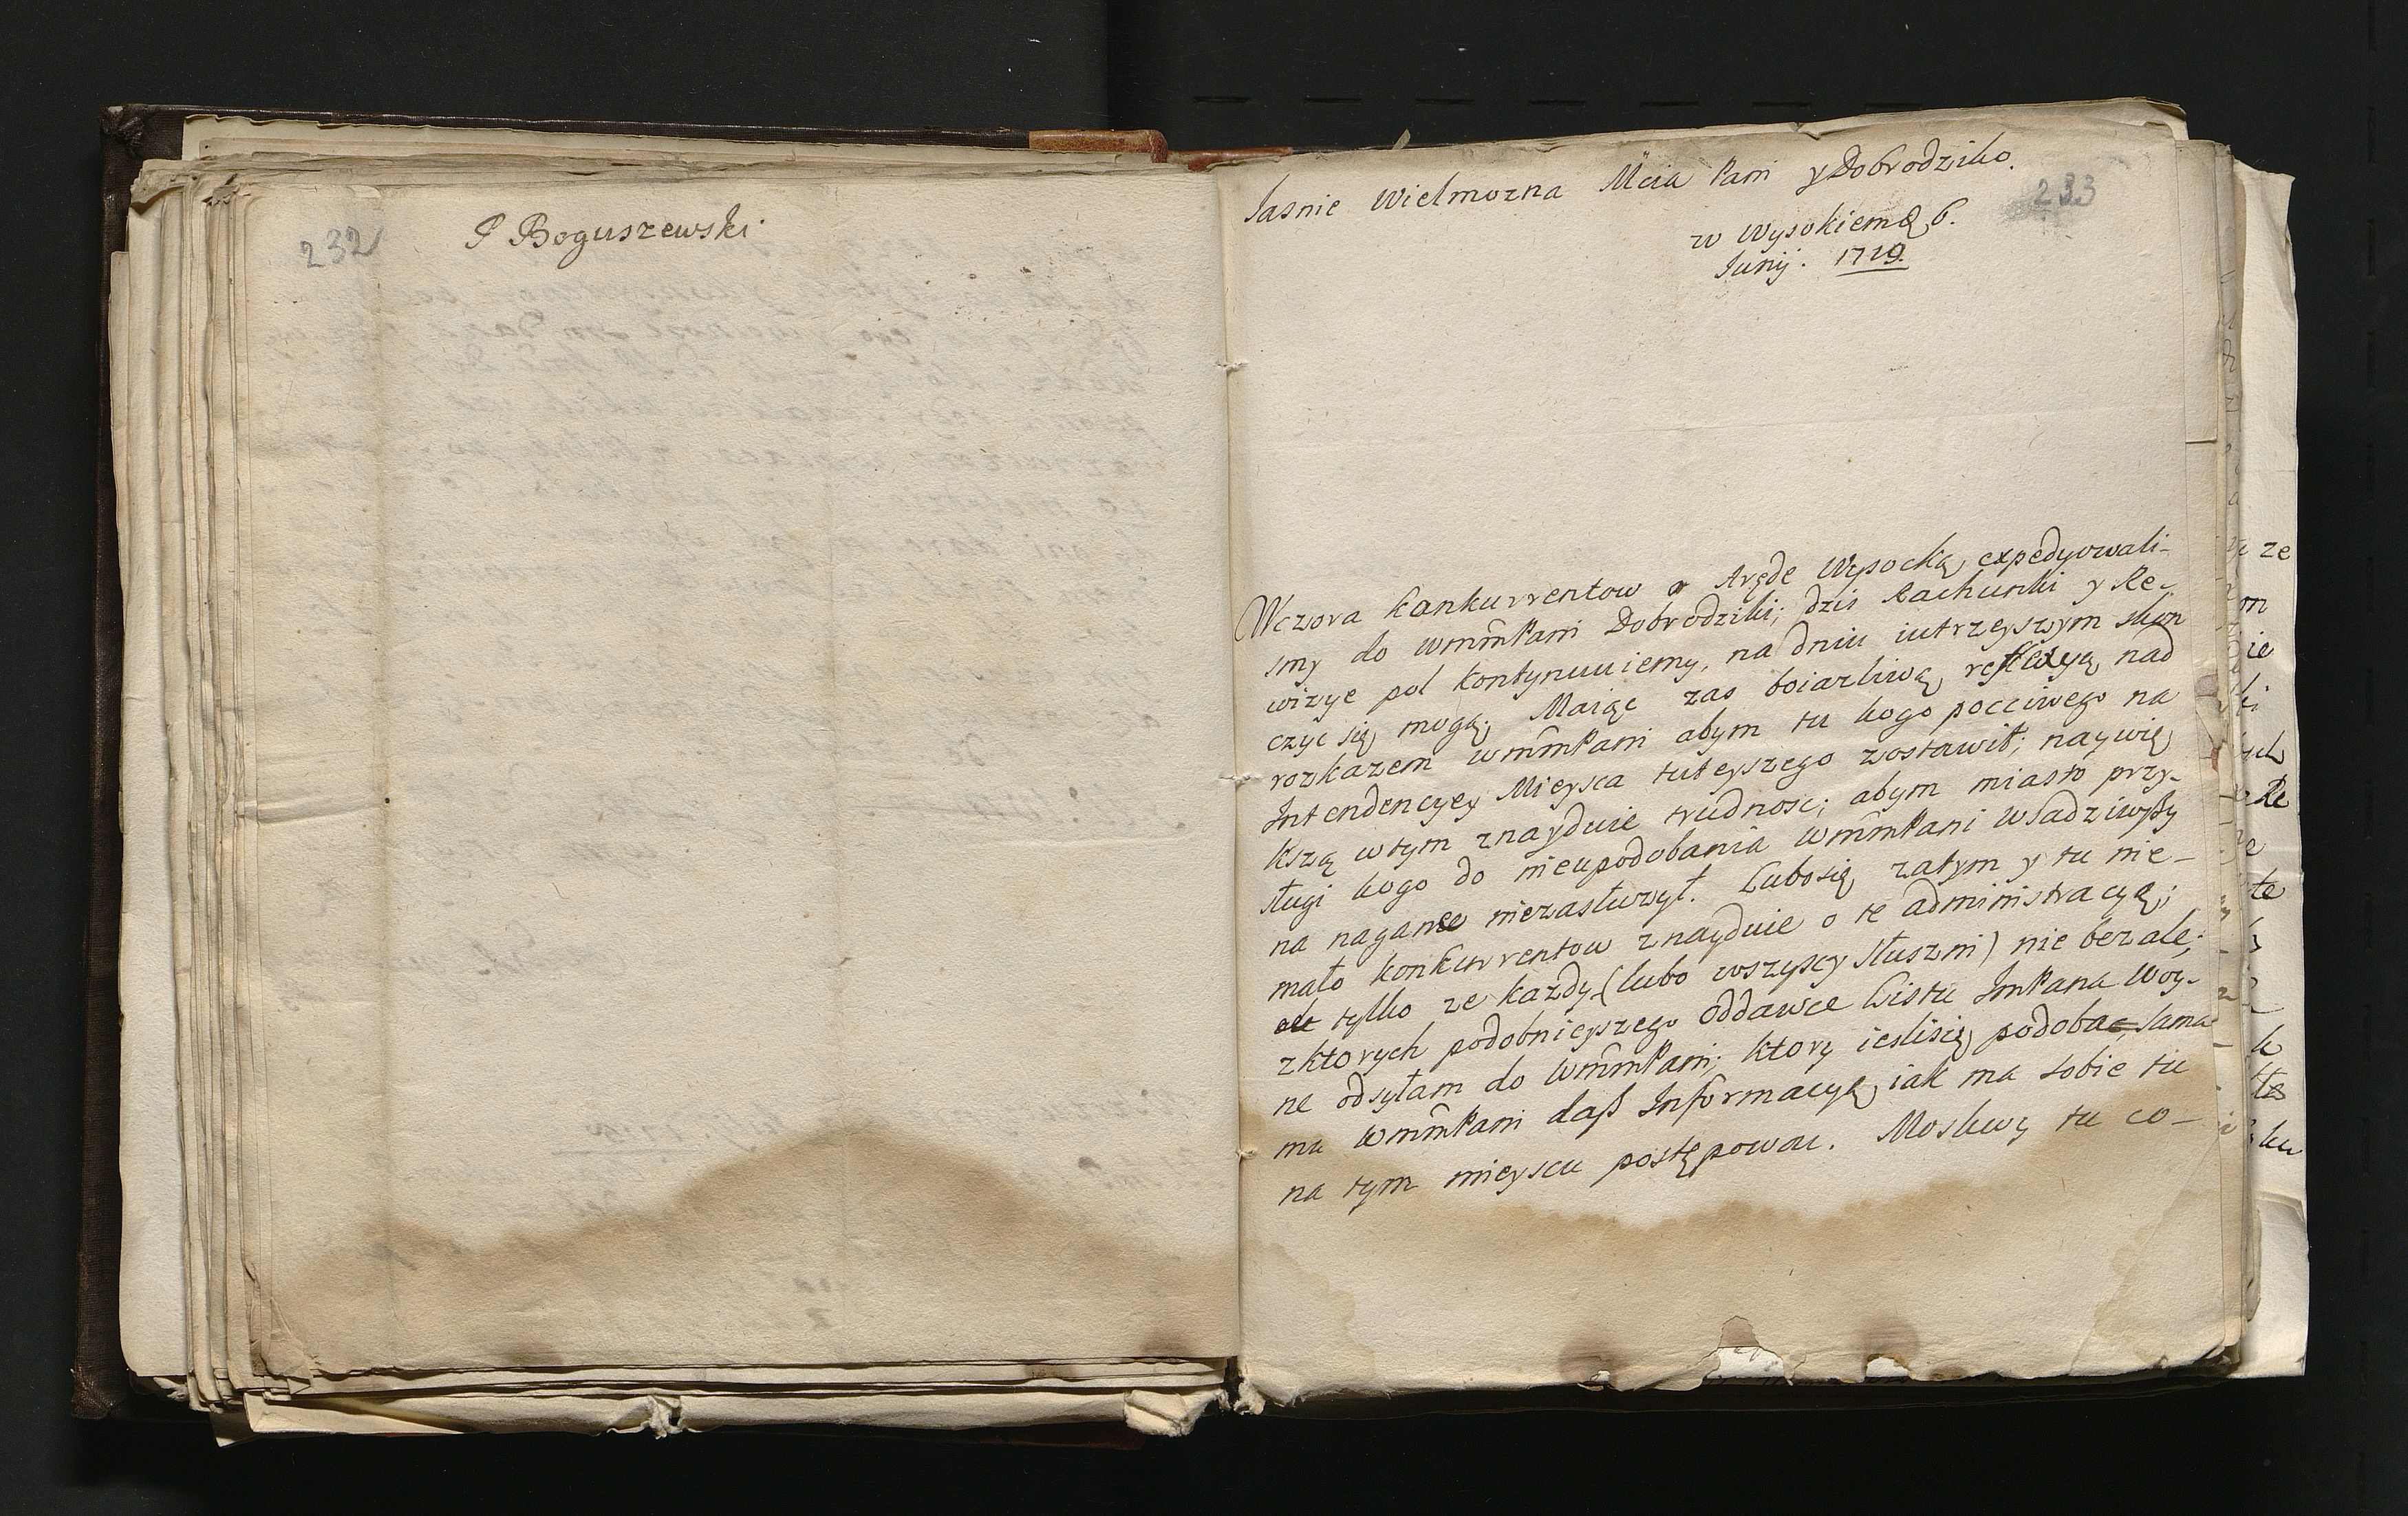 232
P Boguszewski
Jasnie Wielmozna Mcia Pani y Dobrodziko.
233
w Wysokiem D 6.
Junij. 1729.
Wczora kankurrentow o Arędę Wysocką expedyowali-
smy do WmmPani Dobrodziki; dzis Rachunki y Re-
wizye pol kontynuuiemy, na dniu iutrzeyszym skon
czyc się mogą. Maiąc zas boiazliwą reflexyą nad
rozkazem WmmPani abym tu kogo pocciwego na
Intendencyey Mieysca tuteyszego zostawił; naywię
kszą w tym znayduie trudnosc; abym miasto przy-
sługi kogo do nieupodobania WmmPani wsadziwszy
na nagane niezasłuzył. Lubosię zatym y tu nie-
mało konkurrentow znayduie o te administracyą;
ale tylko ze kazdy (lubo wszyscy słuszni) nie bez ale;
z ktorych podobnieyszego oddawce Listu ImPana Woy-
ne odsyłam do WmmPani; ktory ieslisię podobac, sama
mu WmmPani dasz Informacyą iak ma sobie tu
na tym mieyscu postępowac. Moskwy tu co-